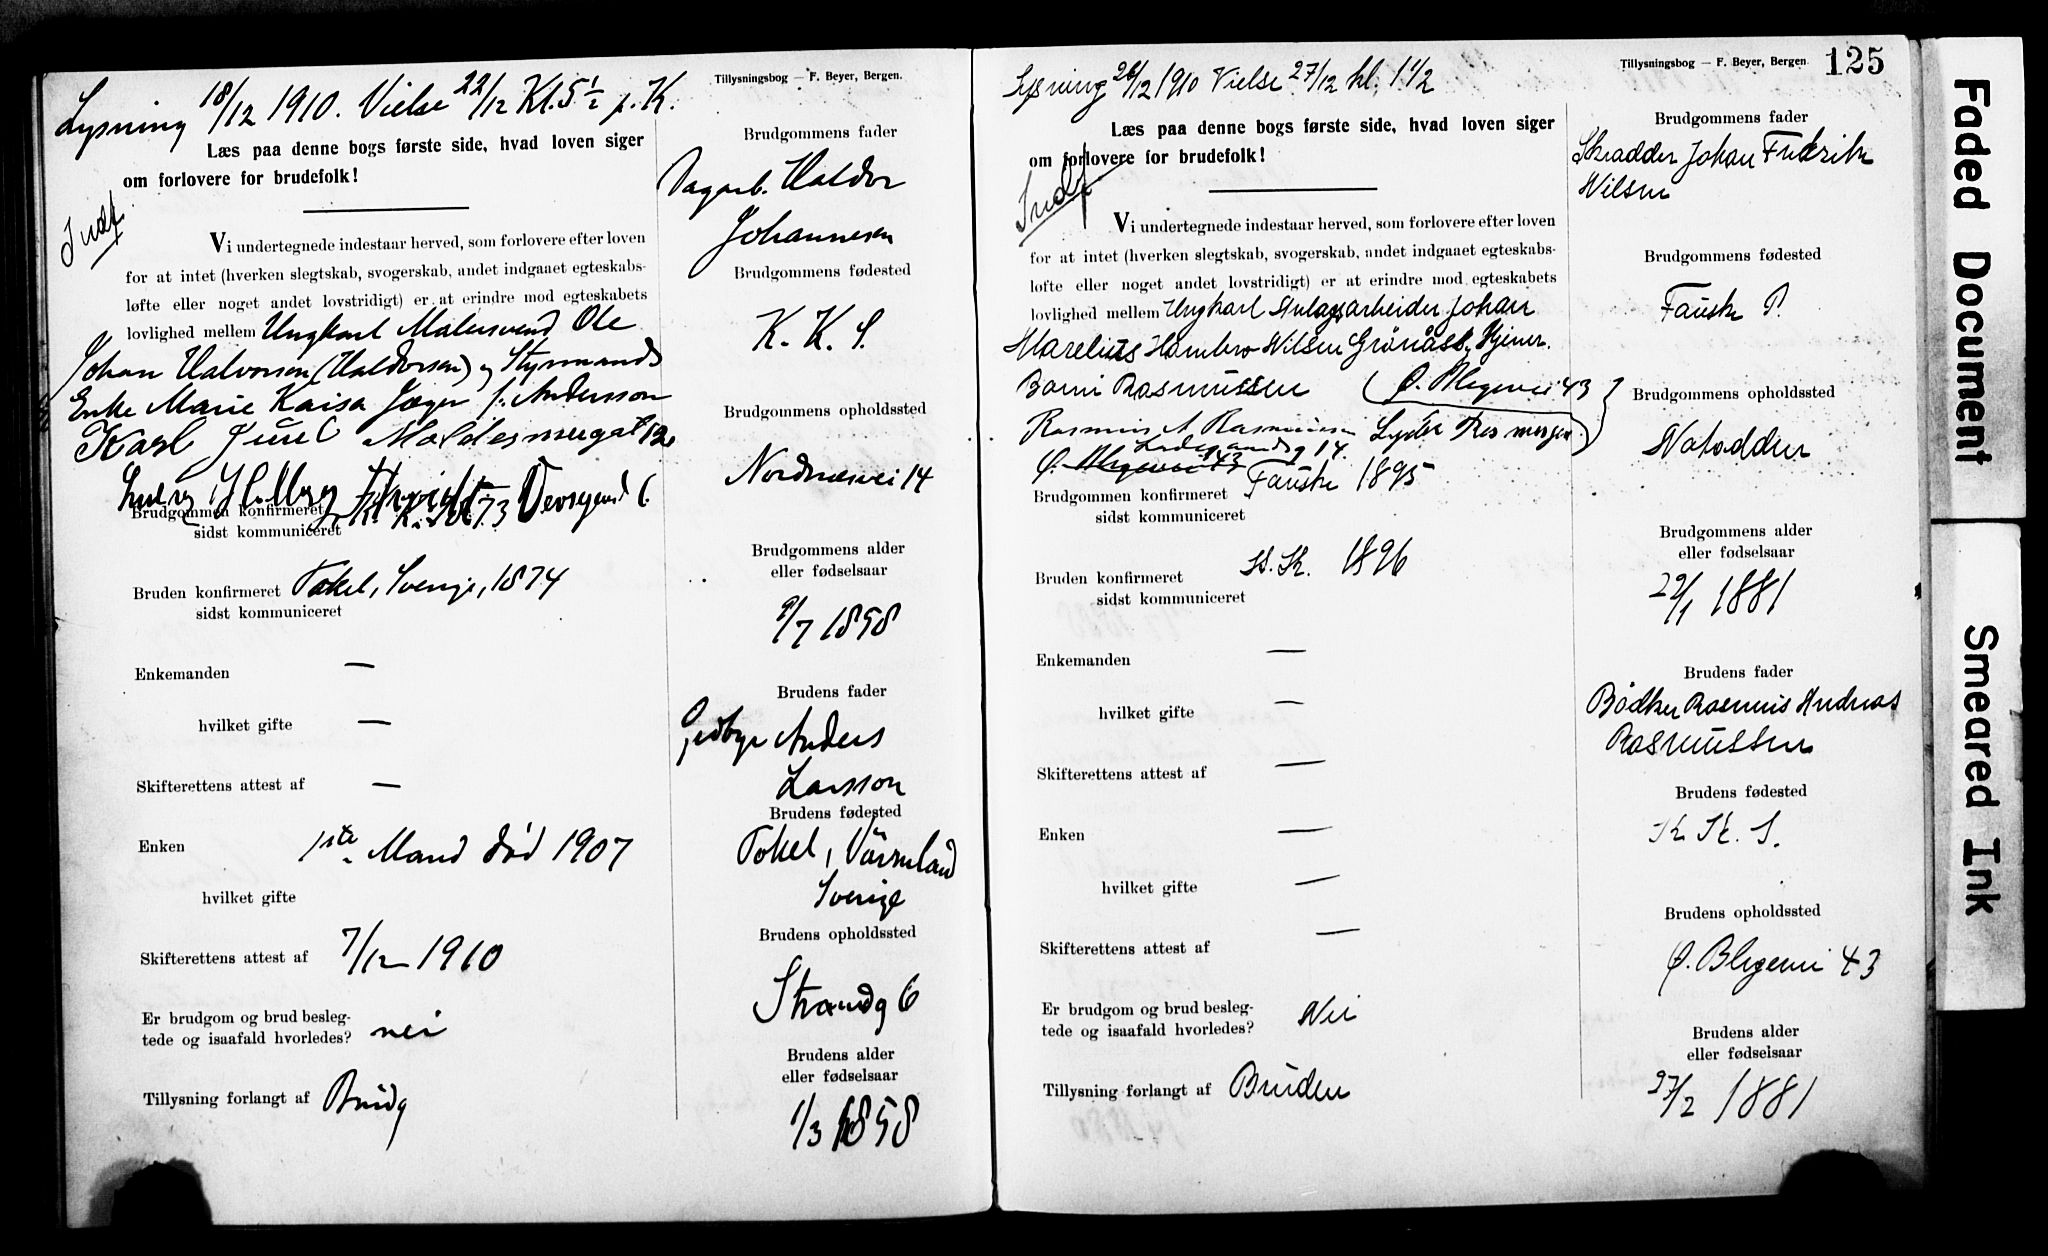 Lysning 18/12 1910. Vielse 22/12 Kl. 5½ p. K.
Tillysningsbog — F. Beyer, Bergen.
Læs paa denne bogs første side, hvad loven siger
om forlovere for brudefolk!
Indf
Vi undertegnede indestaar herved, som forlovere efter loven
for at intet (hverken slegtskab, svogerskab, andet indgaaet egteskabs-
løfte eller noget andet lovstridigt) er at erindre mod egteskabets
lovlighed mellem Ungkarl Malersvend Ole
Johan Halvorsen (Haldorsen) og Styrmands
Enke Marie Kaisa Jæger f. Andersson
Karl Juul
Brudgommen konfirmeret K. K. 1873
sidst kommuniceret
Bruden konfirmeret Tokel, Sverige, 1874
sidst kommuniceret
Enkemanden —
hvilket gifte —
Skifterettens attest af —
Enken 1ste Mand død 1907
hvilket gifte
Skifterettens attest af 7/12 1910
Er brudgom og brud besleg-
tede og isaafald hvorledes? nei
Tillysning forlangt af Brudg
Brudgommens fader
Dagarb. Haldor
Johannesen
Brudgommens fødested
K. K. S.
Brudgommens opholdssted
Nordnæsvei 14
Brudgommens alder
eller fødselsaar
9/7 1858
Brudens fader
Anders
Larsson
Brudens fødested
Tokel, Värmland
Sverige
Brudens opholdssted
Strandg 6
Brudens alder
eller fødselsaar
1/3 1858
Lysning 26/12 1910 Vielse 27/12 kl. 1 1/2
Tillysningsbog — F. Beyer, Bergen 125
Læs paa denne bogs første side, hvad loven siger
om forlovere for brudefolk!
Indf
Vi undertegnede indestaar herved, som forlovere efter loven
for at intet (hverken slegtskab, svogerskab, andet indgaaet egteskabs-
løfte eller noget andet lovstridigt) er at erindre mod egteskabets
lovlighed mellem Ungkarl Anlagsarbeider Johan
Marelius Hambro Nilsen Grønåss og Pjener.
Rasmussen (Ø. Blegevei 43
Rasmus A Rasmussen
Ø. Blegevei 43
Brudgommen konfirmeret Fauske 1895
sidst kommuniceret
Bruden konfirmeret St. K. 1896
sidst kommuniceret
Enkemanden —
hvilket gifte —
Skifterettens attest af —
Enken —
hvilket gifte —
Skifterettens attest af —
Er brudgom og brud besleg-
tede og isaafald hvorledes? Nei
Tillysning forlangt af Bruden
Brudgommens fader
Skrædder Johan Fredrik
Nilsen
Brudgommens fødested
Fauske P.
Brudgommens opholdssted
Notodden
Brudgommens alder
eller fødselsaar
29/1 1881
Brudens fader
Bødker Rasmus Andreas
Rasmussen
Brudens fødested
K. K. S.
Brudens opholdssted
Ø. Blegevei 43
Brudens alder
eller fødselsaar
27/2 1881
Faded Document
Smeared Ink